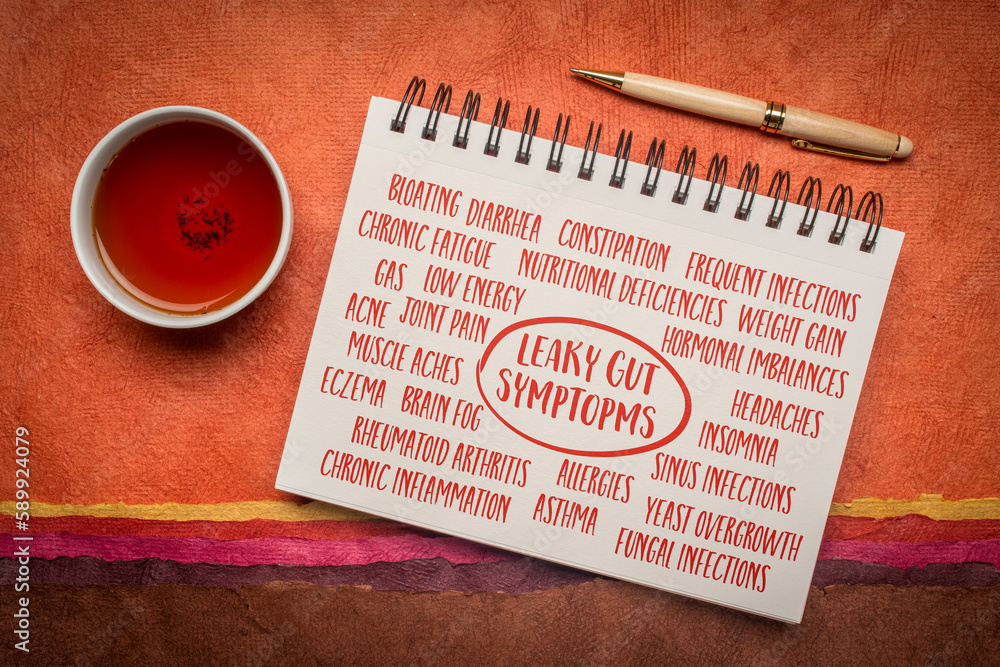 BLOATING DIARRHEA CONSTIPATION FREQUENT INFECTIONS
CHRONIC FATIGUE NUTRITIONAL DEFICIENCIES WEIGHT GAIN
GAS LOW ENERGY HORMONAL IMBALANCES
ACNE JOINT PAIN
LEAKY GUT
SYMPTOPMS
MUSCLE ACHES HEADACHES
ECZEMA BRAIN FOG INSOMNIA
RHEUMATOID ARTHRITIS ALLERGIES SINUS INFECTIONS
CHRONIC INFLAMMATION ASTHMA YEAST OVERGROWTH
FUNGAL INFECTIONS
Adobe Stock | #589924079